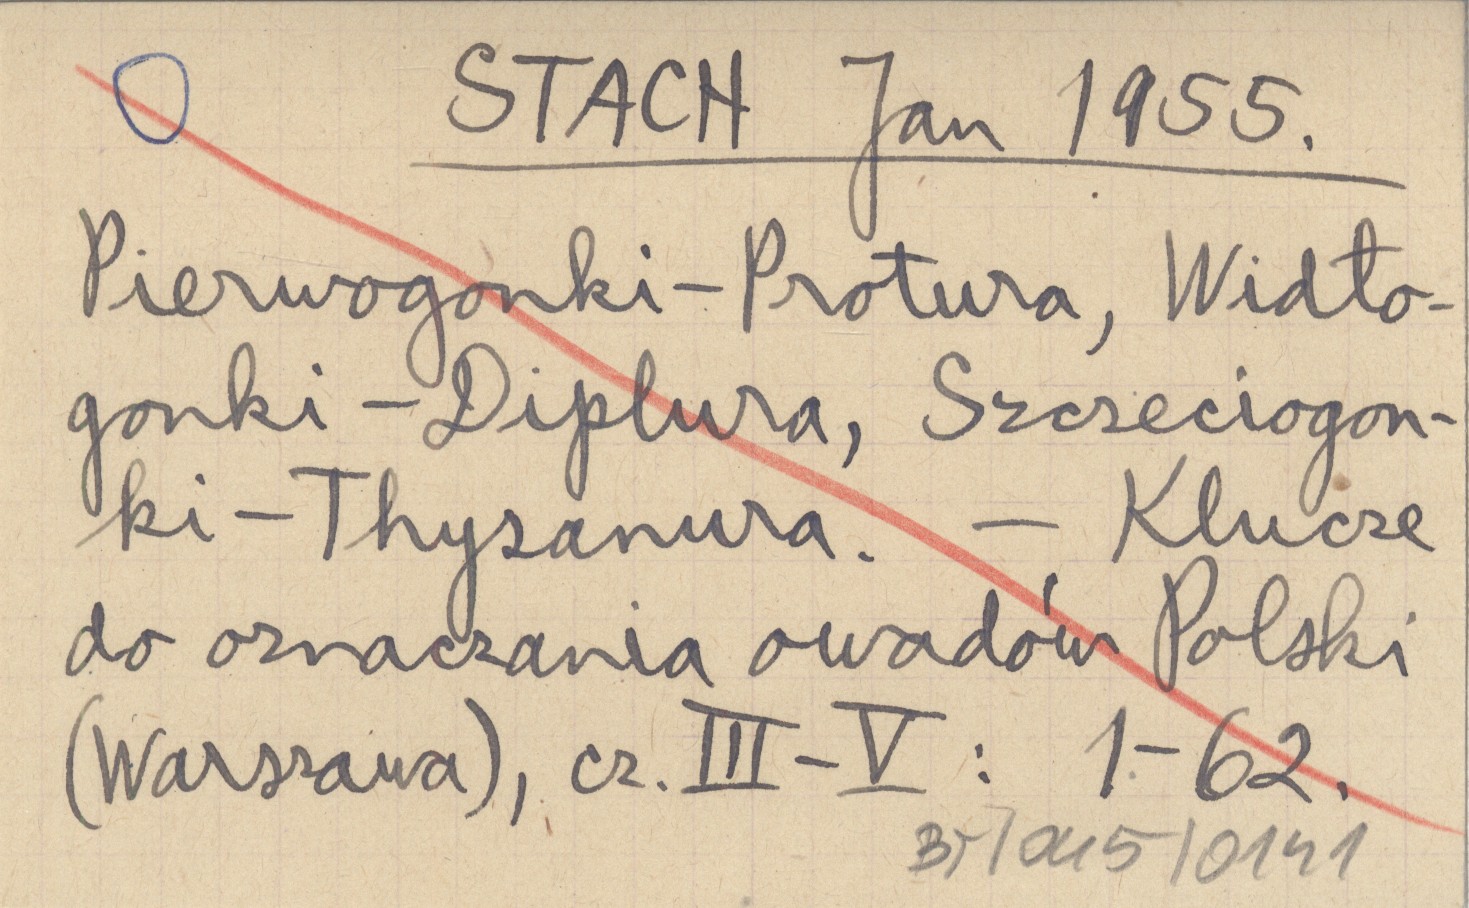 STACH Jan 1955.
Pierwogonki-Protura, Widło-
gonki-Diplura, Szczeciogon-
ki-Thysanura. - Klucze
do oznaczania owadów Polski
(Warszawa), cz. III-V: 1-62.
/0141